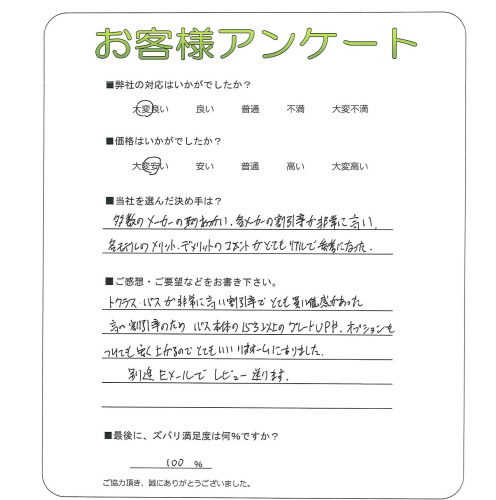 お客様アンケート
■弊社の対応はいかがでしたか？
大変良い 良い 普通 不満 大変不満
■価格はいかがでしたか？
大変安い 安い 普通 高い 大変高い
■当社を選んだ決め手は？
多数のメーカーの取りあつかい、各メーカーの割引率が非常に高い、
各モデルのメリット、デメリットのコメントがとてもリアルで参考になった。
■ご感想・ご要望などをお書き下さい。
トクラス・バスが非常に高い割引率でとても買い得感があった
高い割引率のため バス本体の 以上のグレードUPや、オプションを
つけても安く上がるのでとてもいいリフォームになりました。
別途Eメールでレビュー送ります.
■最後に、ズバリ満足度は何%ですか？
100 %
ご協力頂き、誠にありがとうございました。